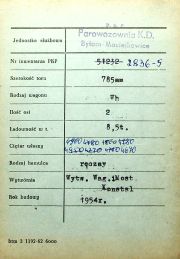 Jednostka służbowa
P.K.P.
Parowozownia K.D.
Bytom-Maciejkowice
Nr inwentarza PKP 51232- 2836-S
Szerokość toru 785mm
Rodzaj wagonu Wh
Ilość osi 2
Ładowność w t. 8,5t.
Ciężar własny
Rodzaj hamulca ręczny
Wytwórnia Wytw. Wag.iMost.
Konstal
Rok budowy 1954r.